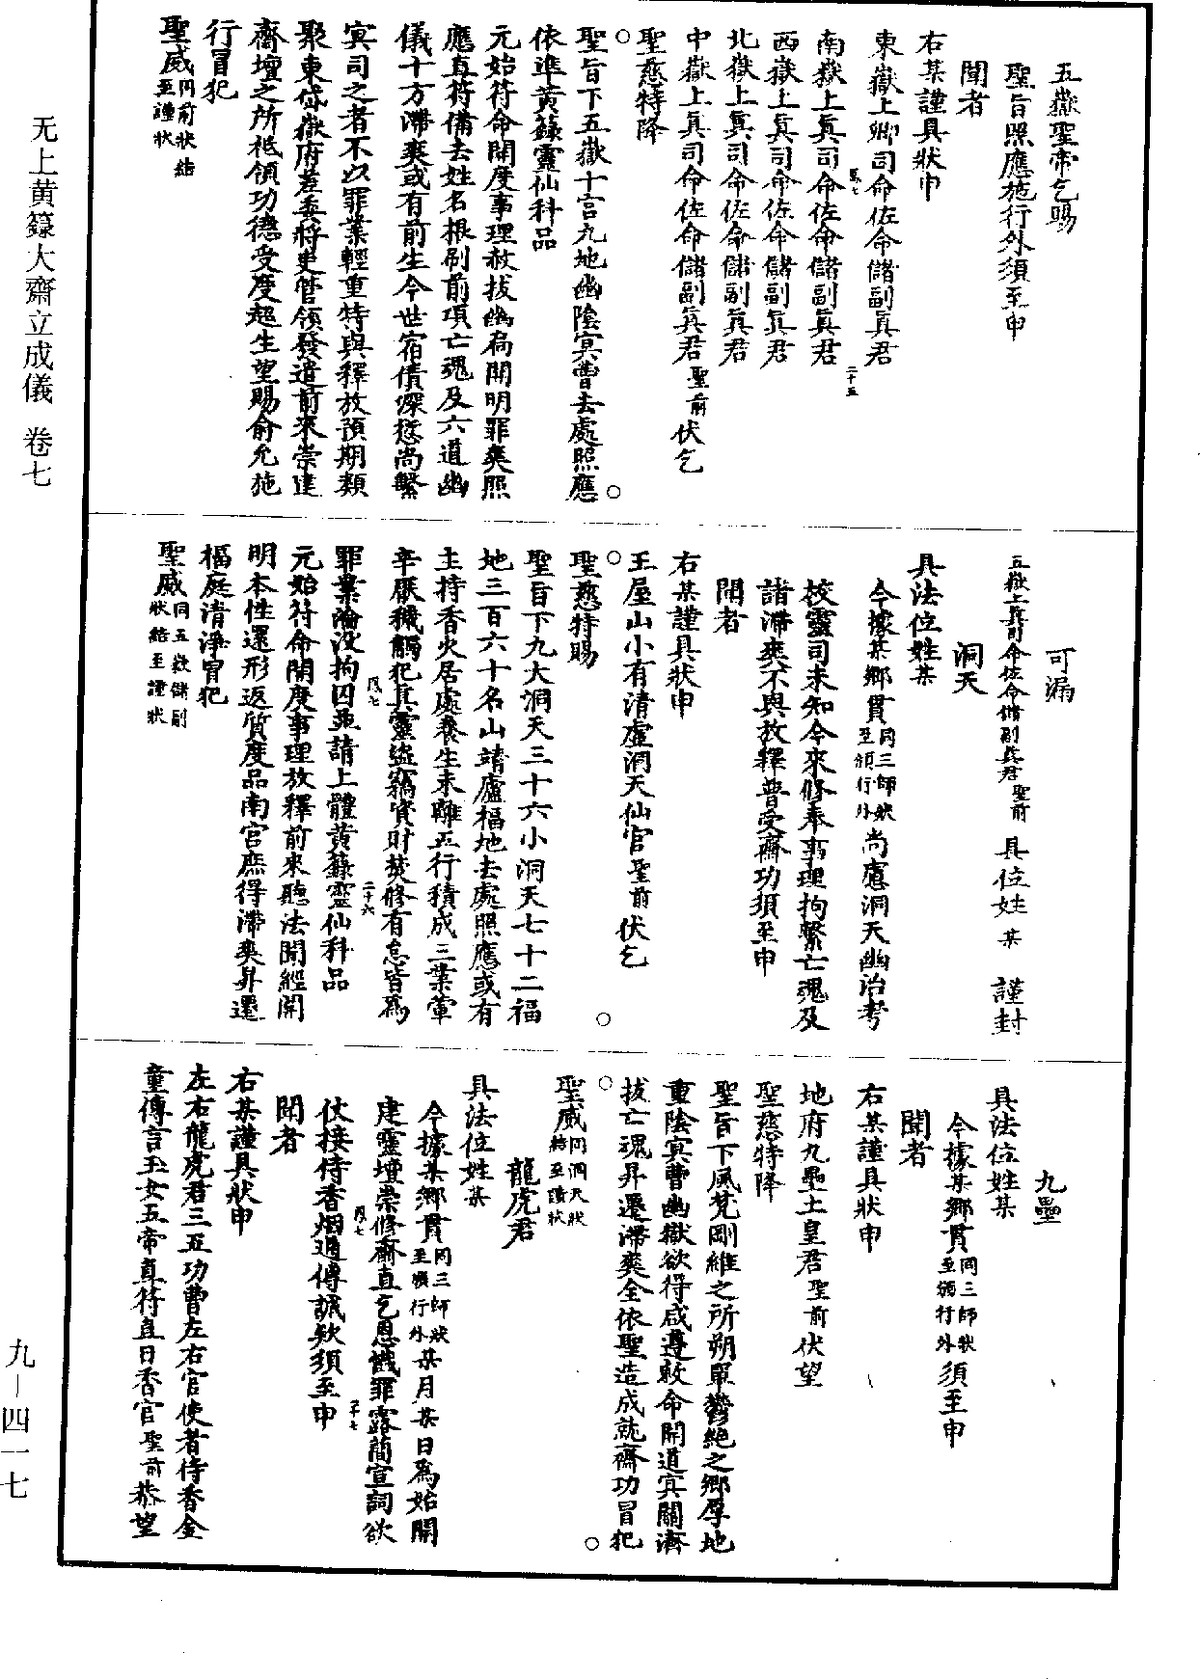 五嶽聖帝乞賜
聖旨照應施行外須至申
聞者
右某謹具狀申
東嶽上卿司命佐命儲副真君
南嶽上真司命佐命儲副真君
西嶽上真司命佐命儲副真君
北嶽上真司命佐命儲副真君
中嶽上真司命佐命儲副真君聖前伏乞
聖慈特降
聖旨下五嶽十宮九地幽陰冥曹去處照應
依準黃籙靈仙科品
元始符命開度事理赦拔幽扃開明罪爽照
應真符備去姓名根刷前項亡魂及六道幽
儀十方滯爽或有前生今世宿債深愆尚繫
冥司之者不以罪業輕重特與釋放預期類
聚東岱嶽府差委將吏管領發遣前來崇建
齋壇之所祗領功德受度超生望賜俞允施
行冒犯
聖威同前狀結至謹狀
五嶽上真司命佐命儲副真君聖前 具位姓某 謹封
可漏
洞天
具法位姓某
今據某鄉貫同三師狀至頒行外尚慮洞天幽治考
校靈司未知今來修奉事理拘繫亡魂及
諸滯爽不與放釋普受齋功須至申
聞者
右某謹具狀申
王屋山小有清虛洞天仙官聖前伏乞
聖慈特賜
聖旨下九大洞天三十六小洞天七十二福
地三百六十名山靖廬福地去處照應或有
主持香火居處養生未離五行積成三業葷
辛厭穢觸犯真靈盜竊資財焚修有怠皆為
罪業淪沒拘囚並請上體黃籙靈仙科品
元始符命開度事理放釋前來聽法聞經開
明本性還形返質度品南宮庶得滯爽昇遷
福庭清淨冒犯
聖威同五嶽儲副狀結至謹狀
九壘
具法位姓某
今據某鄉貫同三師狀至頒行外須至申
聞者
右某謹具狀申
地府九壘土皇君聖前伏望
聖慈特降
聖旨下風梵剛維之所朔單鬱絕之鄉厚地
重陰冥曹幽獄欲得咸遵敕命開道冥關濟
拔亡魂昇遷滯爽全依聖造成就齋功冒犯
聖威同洞天狀結至謹狀
龍虎君
具法位姓某
今據某鄉貫同三師狀至頒行外某月某日為始開
建靈壇崇修齋直乞恩懺罪露簡宣詞欲
仗接侍香烟通傳誠欵須至申
聞者
右某謹具狀申
左右龍虎君三五功曹左右官使者侍香金
童傳言玉女五帝直符直日香官聖前恭望
无上黄籙大齋立成儀 卷七
九—四一七